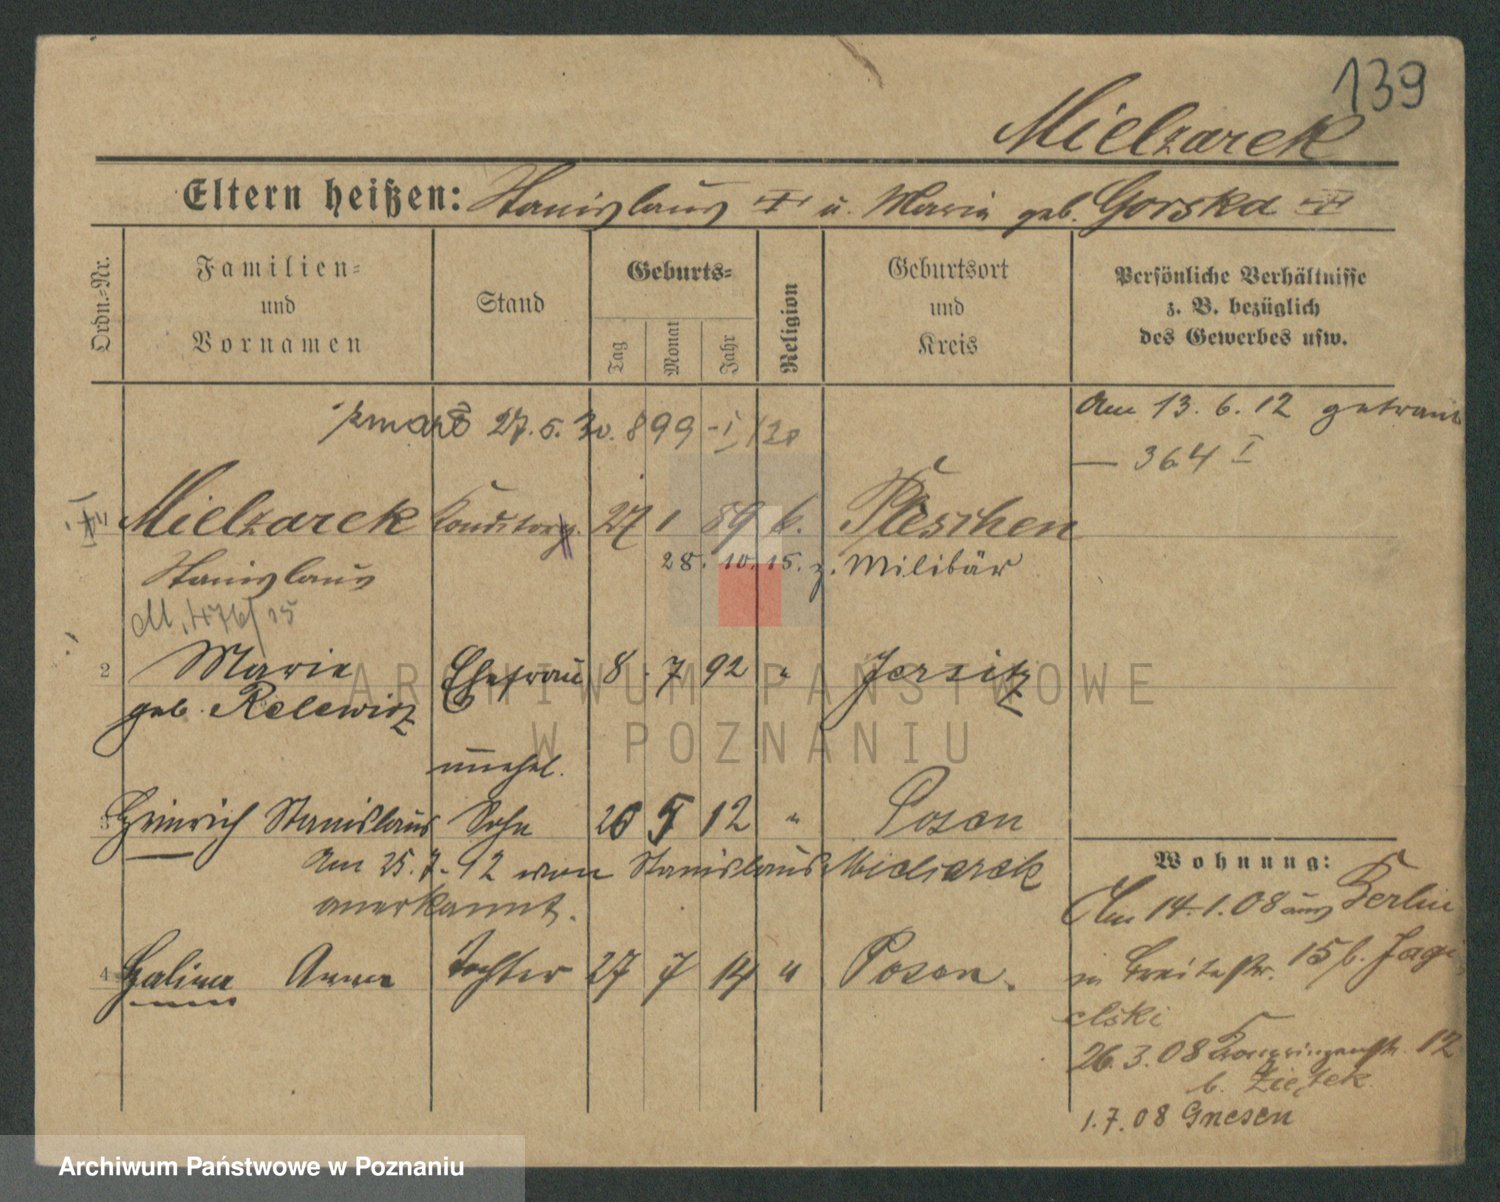 139
Mielzarek
Eltern heißen: Stanislaus u. Maria geb. Gorska
Ordn.-Nr.
Familien-
und
Vornamen
Stand
Geburts-
Tag
Monat
Jahr
Religion
Geburtsort
und
Kreis
Persönliche Verhältnisse
z. B. bezüglich
des Gewerbes usw.
zmarł 27.5.30. 899
Am 13. 6. 12 getraut
— 364 I
Mielzarek Konditorg. 27 1 89 k. Pleschen
28. 10. 15. z. Militär
Stanislaus
M. 476/15
2 Marie Ehefrau 8. 7 92 " Jersitz
geb. Relewicz
unehel.
3 Heinrich Stanislaus Sohn 26 5 12 " Posen
Am 25. 7. 12 von Stanislaus Mielzarek
anerkannt.
4 Halina Anna Tochter 27 7 14 " Posen.
Wohnung:
Am 14.1.08 aus Berlin
in Breitestr. 15 b. Jagi
elski
26.3.08 12
b. Ziętek
1.7.08 Gnesen
ARCHIWUM PAŃSTWOWE
W POZNANIU
Archiwum Państwowe w Poznaniu